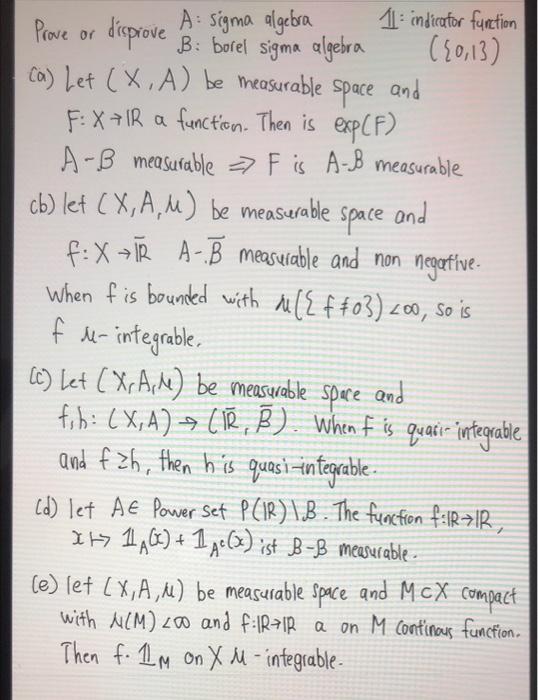 Prove or disprove A: sigma algebra 𝟙: indicator function
B: borel sigma algebra ({0,1})
(a) Let (X, A) be measurable space and
F: X → ℝ a function. Then is exp(F)
A-B measurable ⇒ F is A-B measurable
(b) let (X, A, μ) be measurable space and
f: X → ℝ̄ A-B̄ measurable and non negative.
When f is bounded with μ({f≠0}) < ∞, so is
f μ-integrable.
(c) Let (X, A, μ) be measurable space and
f, h: (X, A) → (ℝ̄, B̄). When f is quasi-integrable
and f ≥ h, then h is quasi-integrable.
(d) let A ∈ Power set P(ℝ)\B. The function f: ℝ → ℝ,
x ↦ 𝟙_A(x) + 𝟙_{A^c}(x) ist B-B measurable.
(e) let (X, A, μ) be measurable space and M ⊂ X compact
with μ(M) < ∞ and f: ℝ → ℝ a on M continous function.
Then f · 𝟙_M on X μ-integrable.